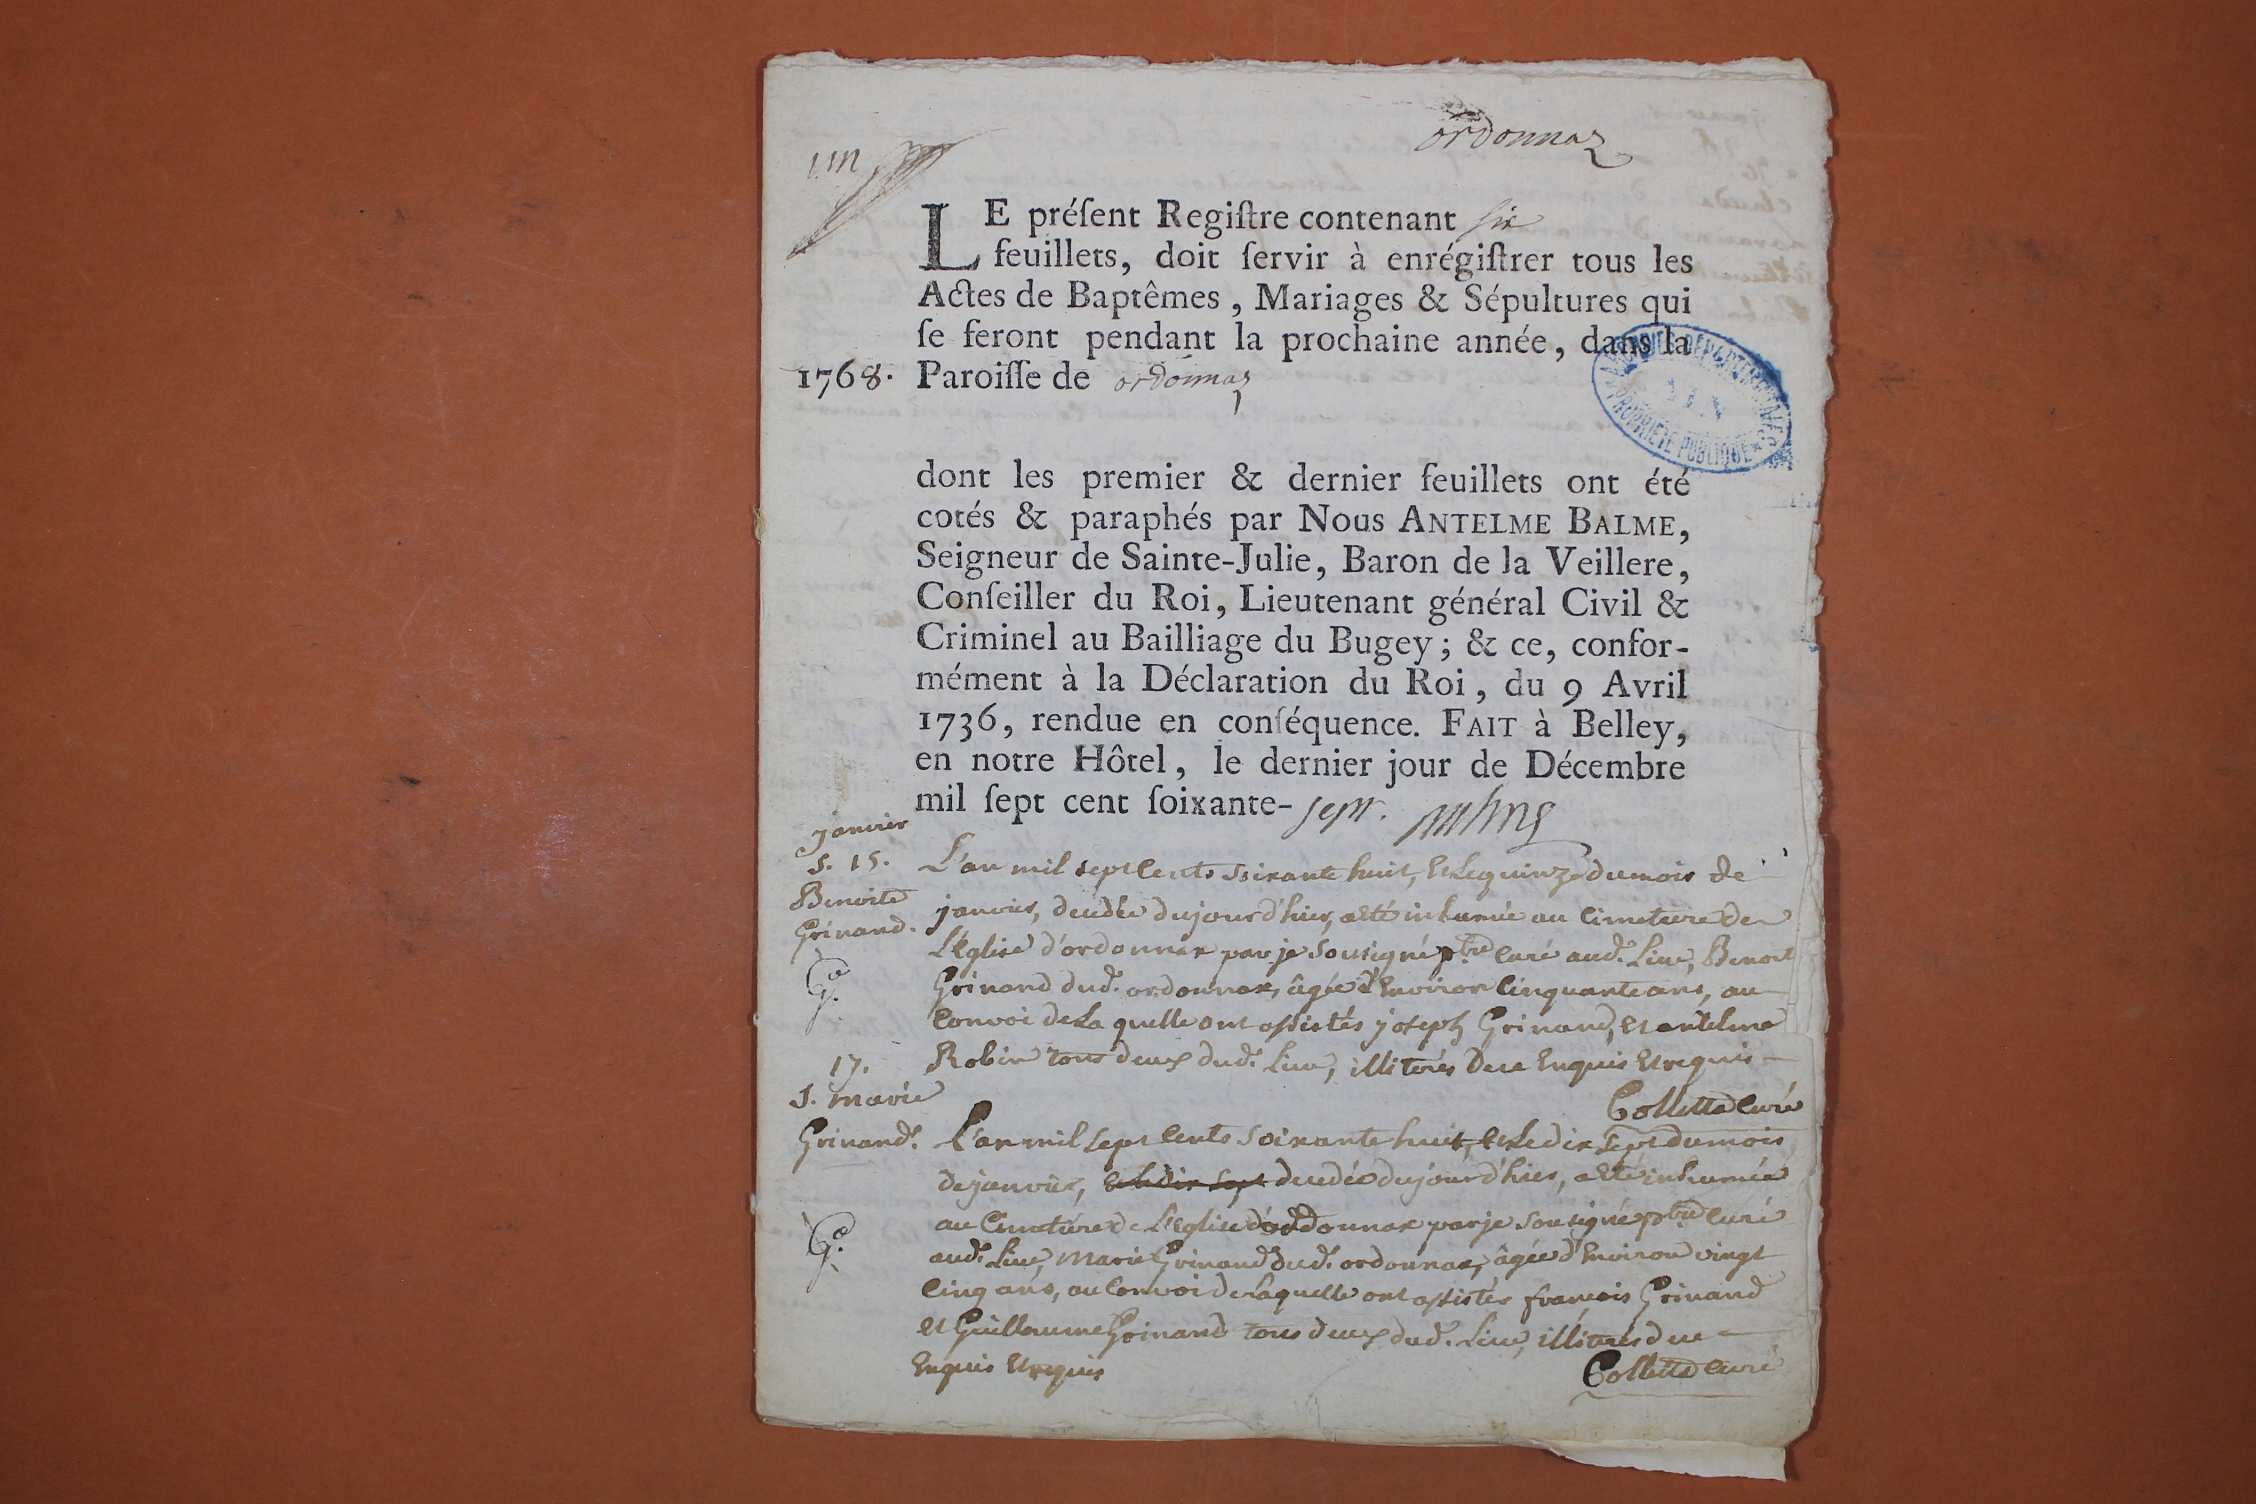 ordonnaz
un
LE préſent Regiſtre contenant six
feuillets, doit ſervir à enrégiſtrer tous les
Actes de Baptêmes, Mariages & Sépultures qui
ſe feront pendant la prochaine année, dans la
1768. Paroiſſe de ordonnaz
ARCHIVES DEPARTEMENTALES
PROPRIÉTÉ PUBLIQUE
dont les premier & dernier feuillets ont été
cotés & paraphés par Nous ANTELME BALME,
Seigneur de Sainte-Julie, Baron de la Veillere,
Conſeiller du Roi, Lieutenant général Civil &
Criminel au Bailliage du Bugey; & ce, confor-
mément à la Déclaration du Roi, du 9 Avril
1736, rendue en conſéquence. FAIT à Belley,
en notre Hôtel, le dernier jour de Décembre
mil ſept cent ſoixante-sept.
janvier
S. 15.
Benoite
Grinand.
L'an mil sept Cents soixante huit, et Le quinze du mois de
janvier, decedée du jour d'hier, a eté inhumée au Cimetiere de
L'eglise d'ordonnax par je sousigné ptre Curé aud. Lieu, Benoit
Grinand dud. ordonnax, âgée d'Environ Cinquante ans, au
Convoi de La quelle ont assistés joseph Grinand, et antelme
Robin tous deux dud. Lieu, illiterés de ce Enquis et requis
Collette Curé
17.
S. marie
Grinand.
L'an mil sept Cents soixante huit, et Le dix sept du mois
de janvier, et Le dix sept decedée du jour d'hier, a eté inhumée
au Cimetiere de L'Eglise d'ordonnax par je sousigné ptre Curé
aud. Lieu, Marie Grinand dud. ordonnax, âgée d'Environ vingt
Cinq ans, au Convoi de Laquelle ont assistés francois Grinand
et Guillaume Grinand tous deux dud. Lieu, illiterés de ce
Enquis et requis
Collette Curé